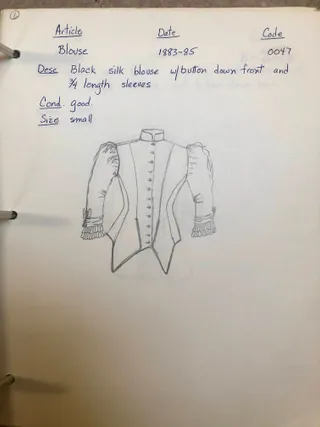 ①
Article Date Code
Blouse 1883-85 0047
Desc Black silk blouse w/button down front and
3/4 length sleeves
Cond. good.
Size small